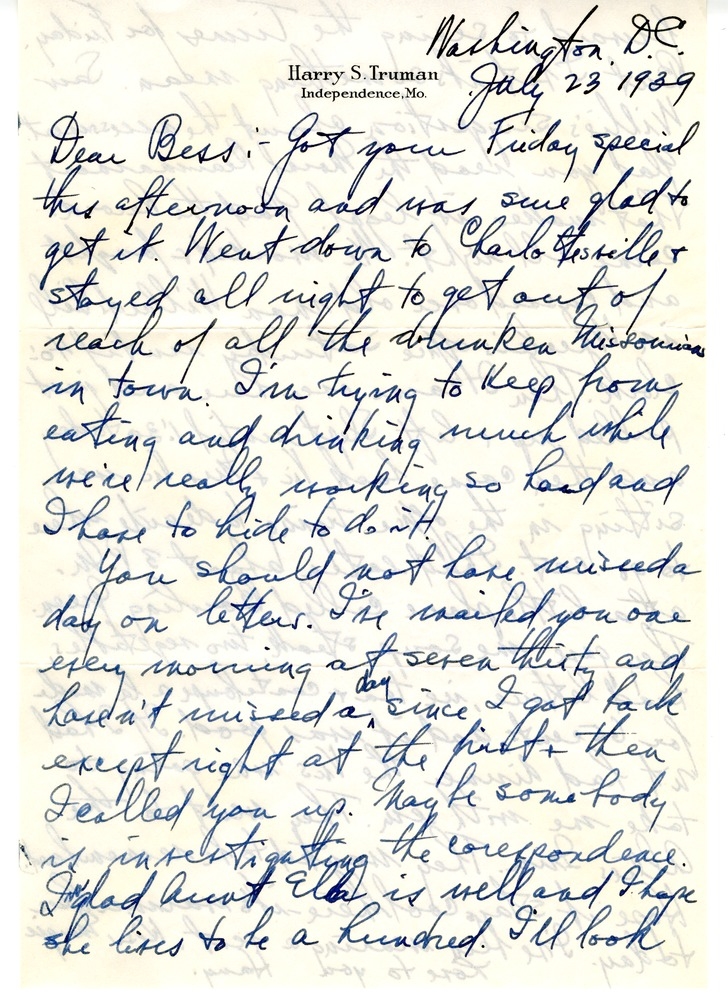 Washington, D.C.
July 23 1939
Harry S. Truman
Independence, Mo.
Dear Bess:- Got your Friday special
this afternoon and was sure glad to
get it. Went down to Charlottesville &
stayed all night to get out of
reach of all the drunken Missourians
in town. I'm trying to keep from
eating and drinking much while
we're really working so hard and
I have to hide to do it.
You should not have missed a
day on letters. I've mailed you one
every morning at seven thirty and
haven't missed a day since I got back
except right at the first & then
I called you up. Maybe somebody
is investigating the corespondence.
I'm glad Aunt Ella is well and I hope
she lives to be a hundred. I'll look